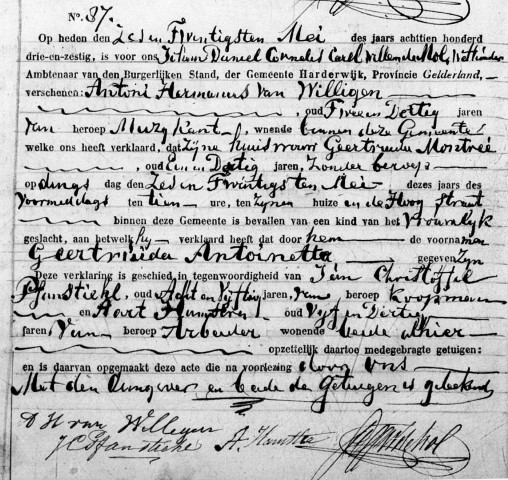 No. 87.
Op heden den Zes en Twintigsten Mei des jaars achttien honderd
drie-en-zestig, is voor ons Johan Daniel Cornelis Carel Willem de Mol, Wethouder
Ambtenaar van den Burgerlijken Stand, der Gemeente Harderwijk, Provincie Gelderland,
verschenen: Antoni Hermanus van Willigen
oud Twee en Dertig jaren
van beroep Muzykant, wonende binnen deze Gemeente
welke ons heeft verklaard, dat zyne huisvrouw Geertruida Montrée
oud Een en Dertig jaren, zonder beroep
op dings dag den Zes en Twintigsten Mei dezes jaars des
voormiddags ten tien ure, ten zynen huize en de Hoog straat
binnen deze Gemeente is bevallen van een kind van het Vrouwelyk
geslacht, aan hetwelk hy verklaard heeft dat door hem de voornamen
Geertruida Antoinetta gegeven zyn
Deze verklaring is geschied, in tegenwoordigheid van Jan Christoffel
Pfanstiehl, oud Acht en Vyftig jaren, van beroep Koopman
en Aart oud Vyf en Dertig
jaren, Van beroep Arbeider wonende beide alhier
opzettelijk daartoe medegebragte getuigen:
en is daarvan opgemaakt deze acte die na voorlezing door ons
Met den Aangever en beide de Getuigen is geteekend
van Willigen
J C Pfanstiehl A.